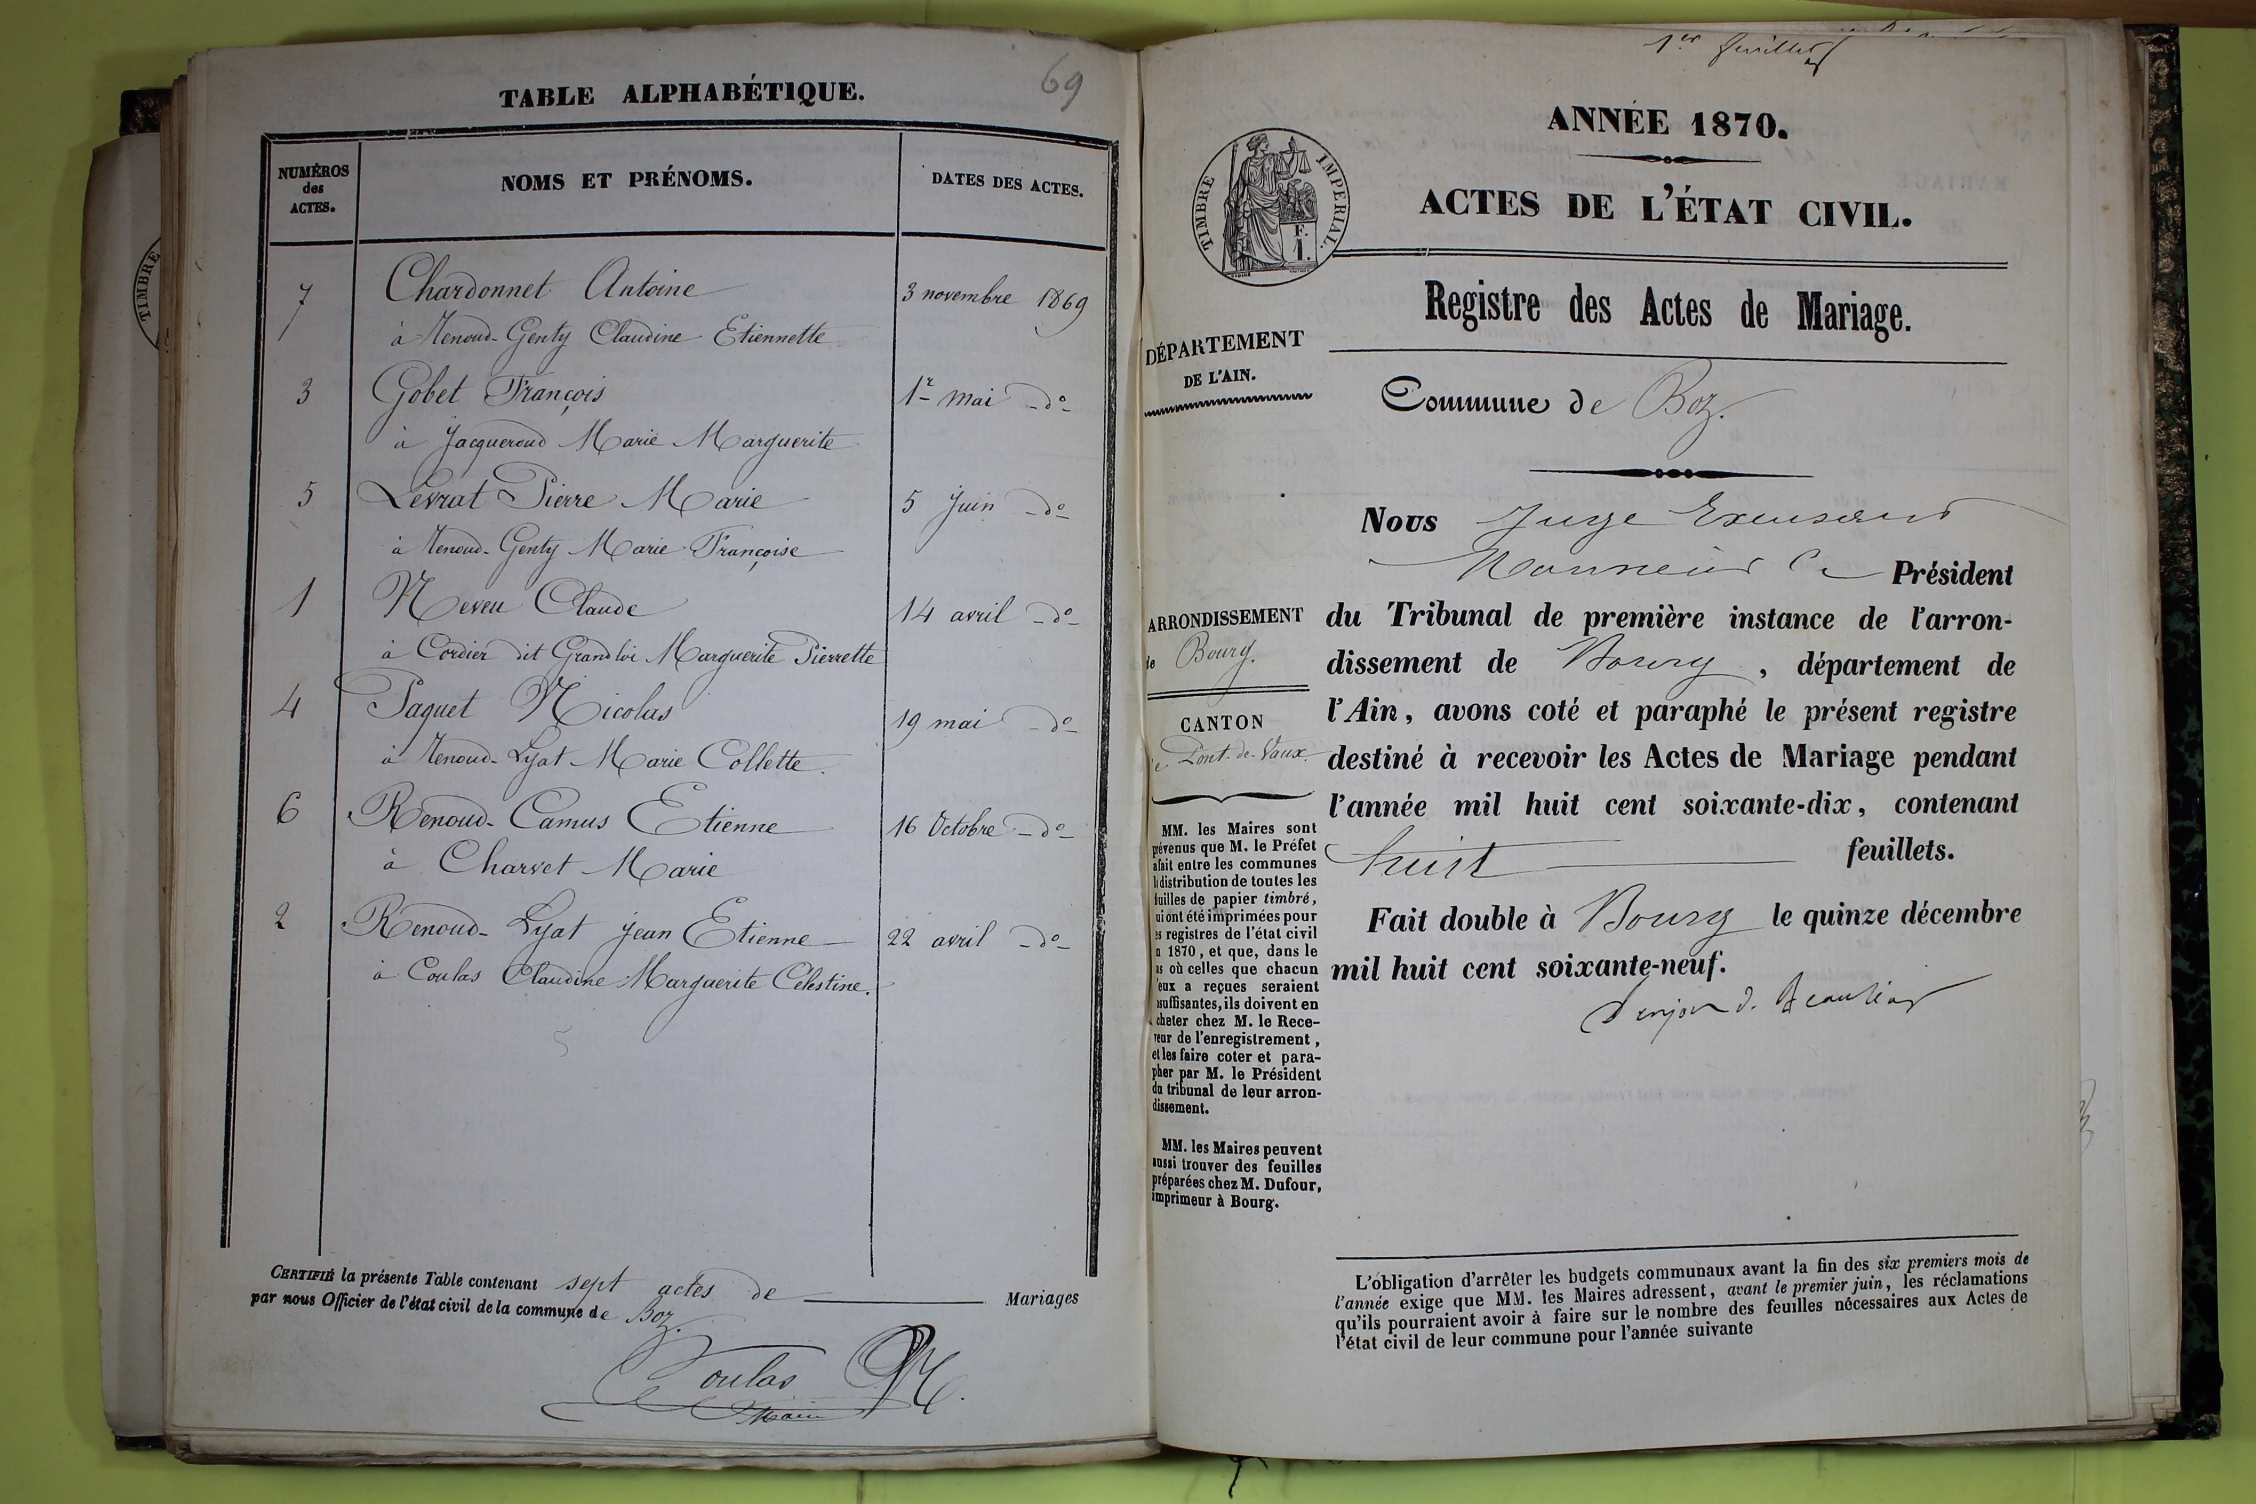 TABLE ALPHABÉTIQUE.
69
NUMÉROS
des
ACTES.
NOMS ET PRÉNOMS.
DATES DES ACTES.
7 Chardonnet Antoine 3 novembre 1869
à Renoud-Genty Claudine Etiennette
3 Gobet François 1r mai do
à Jacqueroud Marie Marguerite
5 Levrat Pierre Marie 5 Juin do
à Renoud-Genty Marie Françoise
1 Neveu Claude 14 avril do
à Cordier dit Grandloi Marguerite Pierrette
4 Paquet Nicolas 19 mai do
à Renoud-Lyat Marie Collette.
6 Renoud-Camus Etienne 16 Octobre do
à Charvet Marie
2 Renoud-Lyat Jean Etienne 22 avril do
à Coulas Claudine Marguerite Celestine.
CERTIFIÉ la présente Table contenant sept actes de Mariages
par nous Officier de l'état civil de la commune de Boz.
Coulas
Maire
TIMBRE
1er feuillet
ANNÉE 1870.
TIMBRE IMPERIAL.
F.
1.
ACTES DE L'ÉTAT CIVIL.
Registre des Actes de Mariage.
DÉPARTEMENT
DE L'AIN.
Commune de Boz.
Nous Juge
Président
ARRONDISSEMENT
de Bourg.
du Tribunal de première instance de l'arron-
dissement de Bourg, département de
l'Ain, avons coté et paraphé le présent registre
destiné à recevoir les Actes de Mariage pendant
l'année mil huit cent soixante-dix, contenant
huit feuillets.
Fait double à Bourg le quinze décembre
mil huit cent soixante-neuf.
CANTON
de Pont-de-Vaux.
MM. les Maires sont
prévenus que M. le Préfet
a fait entre les communes
la distribution de toutes les
feuilles de papier timbré,
qui ont été imprimées pour
es registres de l'état civil
n 1870, et que, dans le
as où celles que chacun
'eux a reçues seraient
nsuffisantes, ils doivent en
cheter chez M. le Rece-
veur de l'enregistrement,
et les faire coter et para-
pher par M. le Président
du tribunal de leur arron-
dissement.
MM. les Maires peuvent
aussi trouver des feuilles
préparées chez M. Dufour,
imprimeur à Bourg.
L'obligation d'arrêter les budgets communaux avant la fin des six premiers mois de
l'année exige que MM. les Maires adressent, avant le premier juin, les réclamations
qu'ils pourraient avoir à faire sur le nombre des feuilles nécessaires aux Actes de
l'état civil de leur commune pour l'année suivante